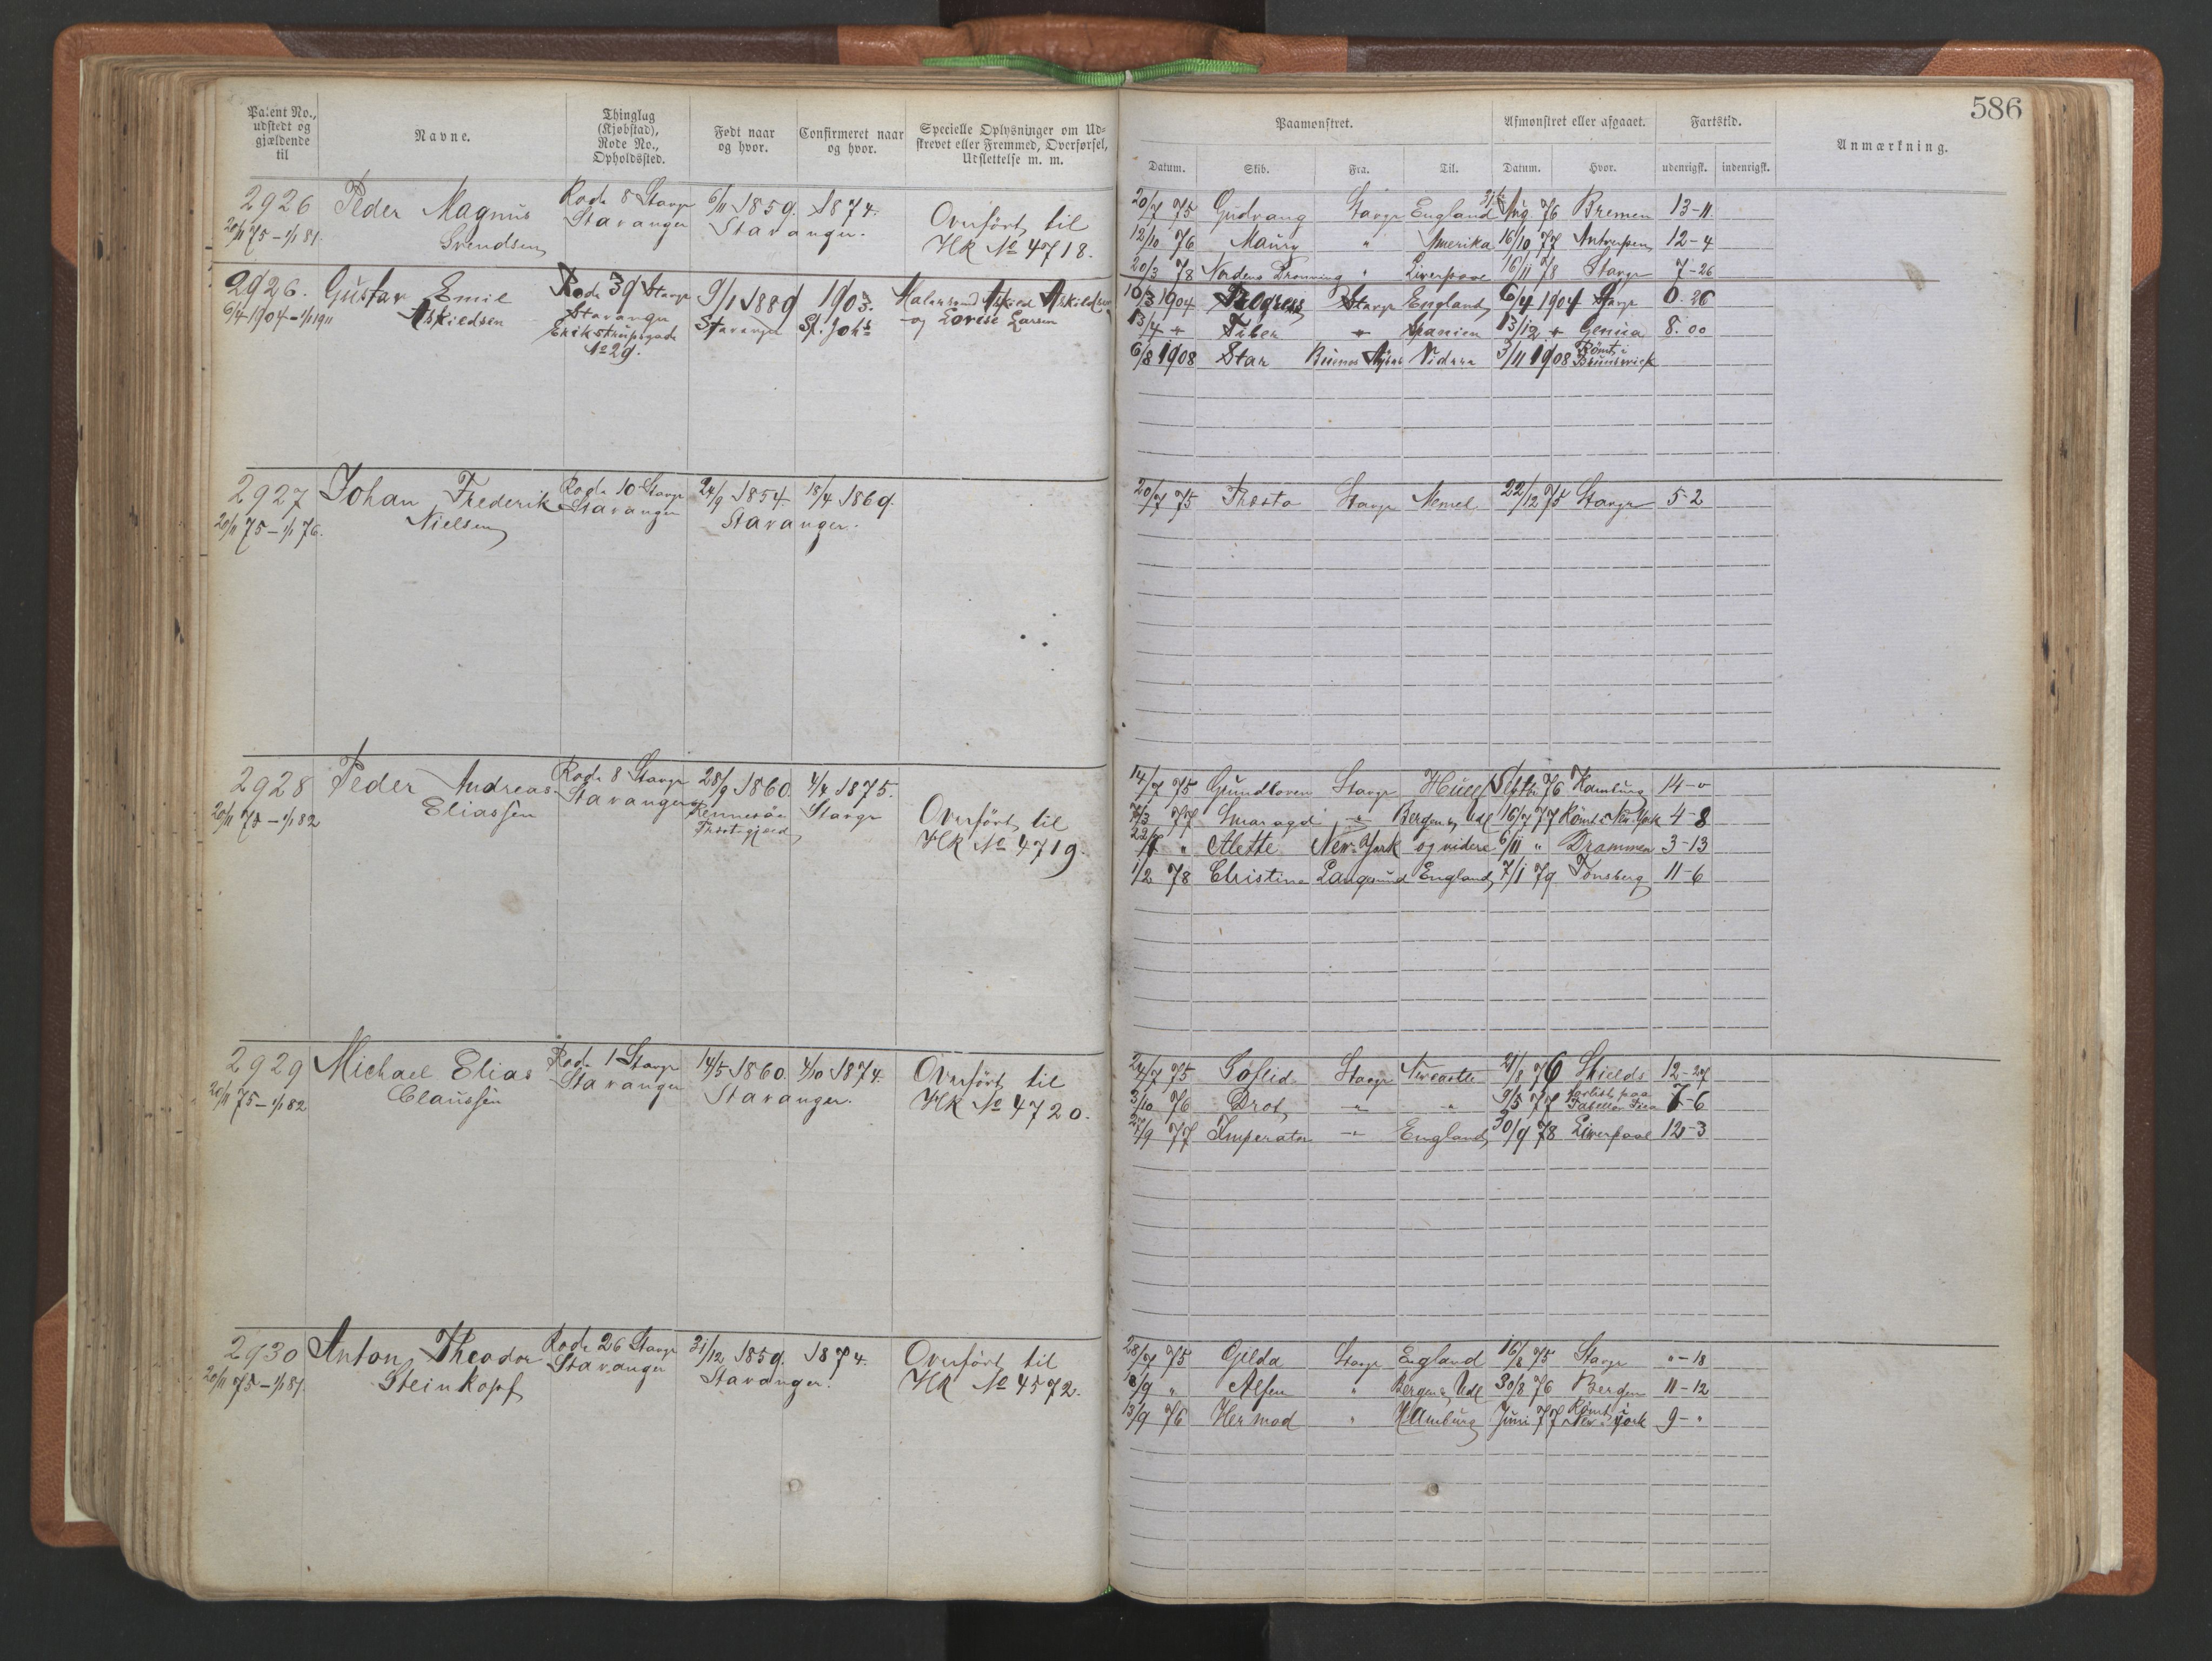 586
Patent No., udstedt og gjældende til
Navne.
Thinglag (Kjøbstad), Rode No., Opholdssted.
Født naar og hvor.
Confirmeret naar og hvor.
Specielle Oplysninger om Udskrevet eller Fremmed, Overførsel, Udslettelse m. m.
Paamønstret.
Afmønstret eller afgaaet.
Fartstid.
Anmærkning.
Datum.
Skib.
Fra.
Til.
Datum.
Hvor.
udenrigsk.
indenrigsk.
2926 Peder Magnus Rode 8 Stavgr 6/11 1859. 1874.
20/11 75 - 1/1 81. Svendsen Stavanger Stavanger.
Overført til
HR No 4718.
20/7 75 Gudvang Stavgr England Aug. 76 Bremen 13-11.
12/10 76 Maury " Amerika 16/10 77 Antwerpen 12-4
20/3 78 Nordens Dronning " Liverpool 16/11 78 Stavgr 7-26
2926. Gustav Emil Rode 39 Stavgr 9/1 1889 1903.
6/4 1904 - 1/1 1911 Askildsen Stavanger Stavanger St. Joh
Erikstrupsgade
No 29.
Askild Askildsen
og Lovise Larsen
10/3 1904 Stavgr England 6/4 1904 Stavgr 0.26
13/4 " Tiber " Spanien 13/12 " Genua 8.00
6/8 1908 Star Buenos Ayres Vidare 3/11 1908 Rømt i Brunswick
2927 Johan Frederik Rode 10 Stavgr 24/9 1854. 18/4 1869.
20/11 75 - 1/1 76. Nielsen Stavanger Stavanger.
20/7 75 Thesto Stavgr Memel 22/12 75 Stavgr 5-2
2928 Peder Andreas Rode 8 Stavgr 28/9 1860. 4/4 1875.
20/11 75 - 1/1 82 Eliassen Stavanger Rennesøe Stavgr
Præstegjeld
Overført til
HR No 4719.
14/7 75 Grundloven Stavgr Hull Septbr 76 Hamburg 14-0
7/3 77 Smaragd " Bergen & Udl 16/7 77 Rømt i New York 4-8
22/7 " Alette New-York og videre 6/11 " Drammen 3-13
1/2 78 Christine Langesund England 7/1 79 Tønsberg 11-6
2929 Michael Elias Rode 1 Stavgr 14/5 1860. 4/10 1874.
20/11 75 - 1/1 82 Claussen Stavanger Stavanger.
Overført til
HR No 4720.
24/7 75 Stavgr Newcastle 21/8 76 Shields 12-27
3/10 76 Drot " " 9/5 77 forlist paa 7-6
27/9 77 Imperator " England 30/9 78 Liverpool 12-3
2930 Anton Theodor Rode 26 Stavgr 31/12 1859. 1874.
20/11 75 - 1/1 81. Steinkopf Stavanger Stavanger.
Overført til
HR No 4572.
28/7 75 Gilda Stavgr England 16/8 75 Stavgr "-18
18/9 " Alfen " Bergen & Udl 30/8 76 Bergen 11-12
13/9 76 Hermod " Hamburg Juni 77 Rømt i New-York 9-"